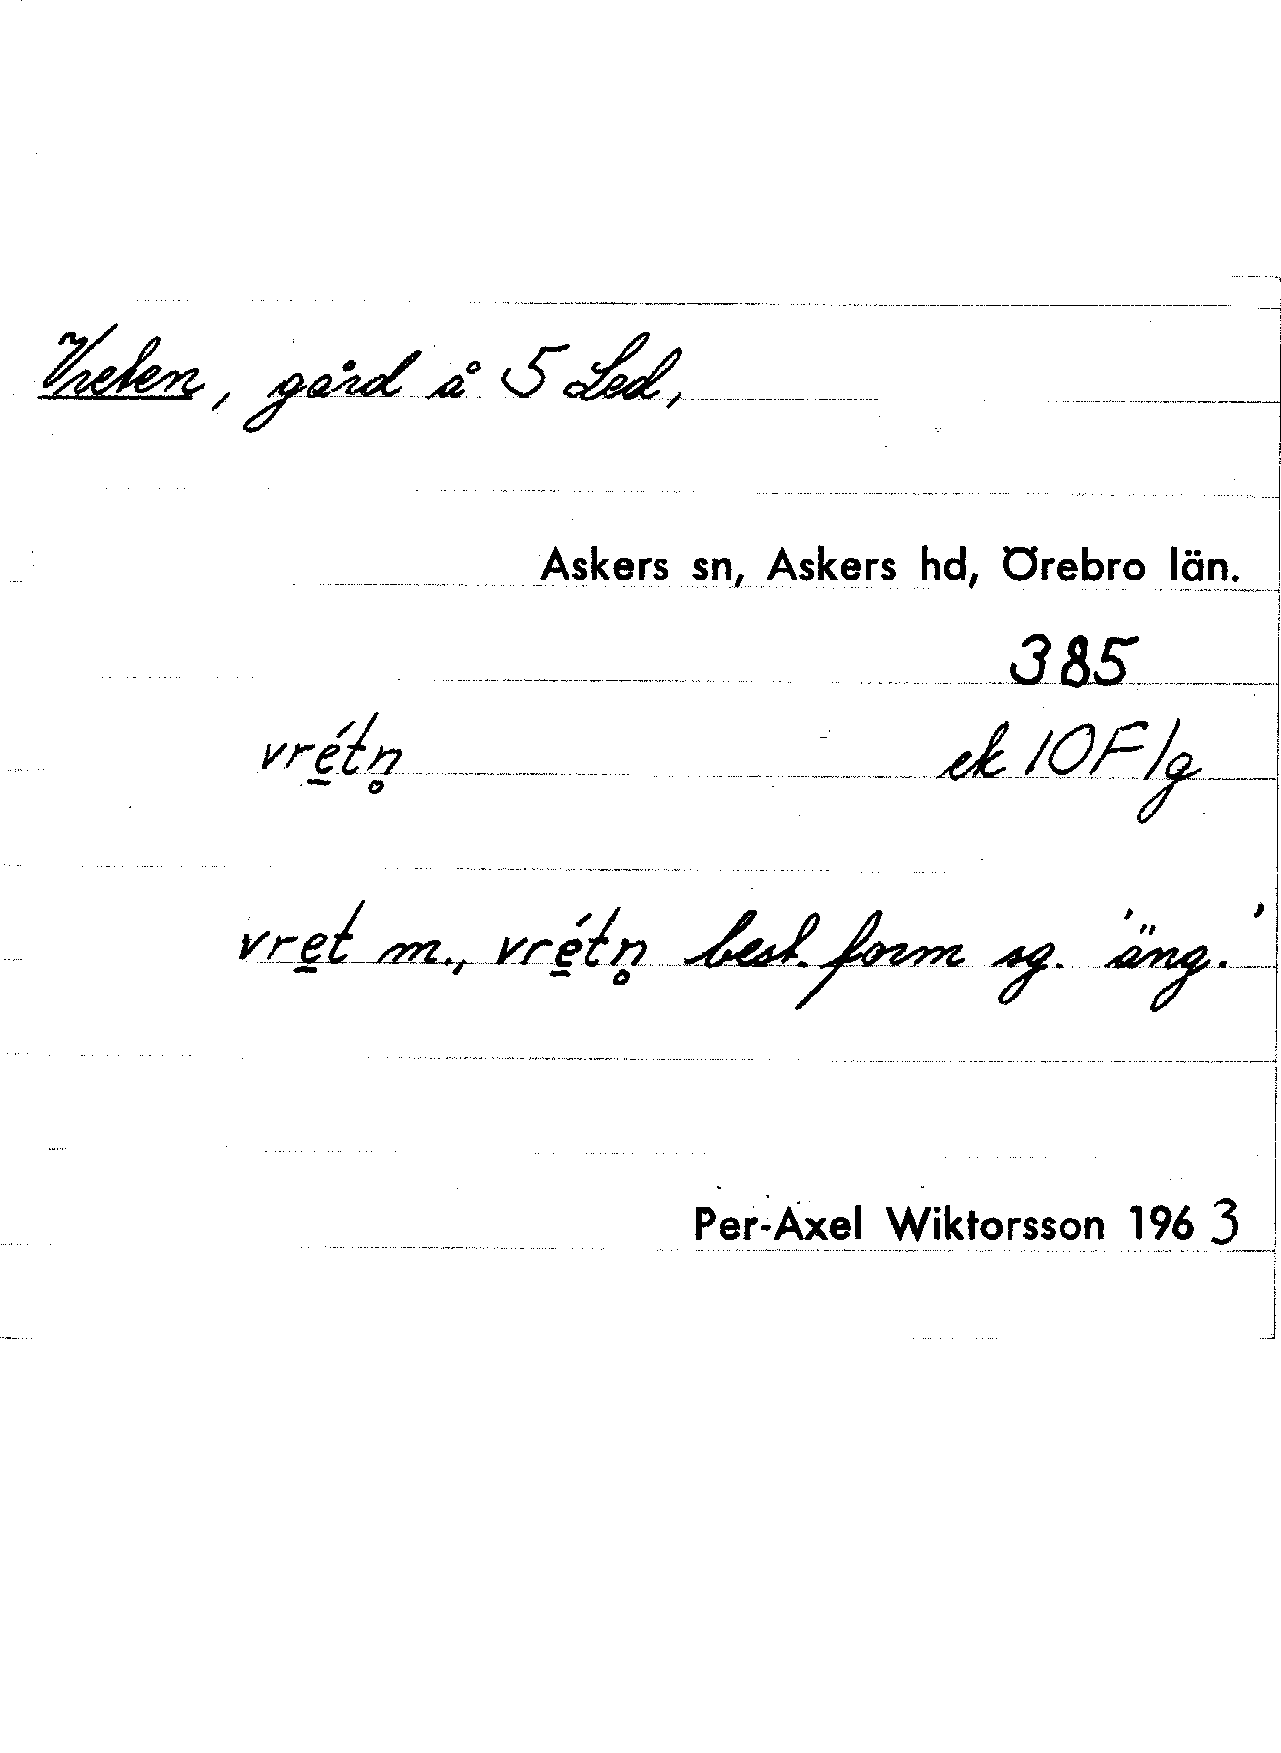 Vreten, gård å 5 Led,
Askers sn, Askers hd, Örebro län.
385
vré̲tn̥ ek 10F/g
vre̲t m., vré̲tn̥ best. form sg. 'äng.'
Per-Axel Wiktorsson 1963